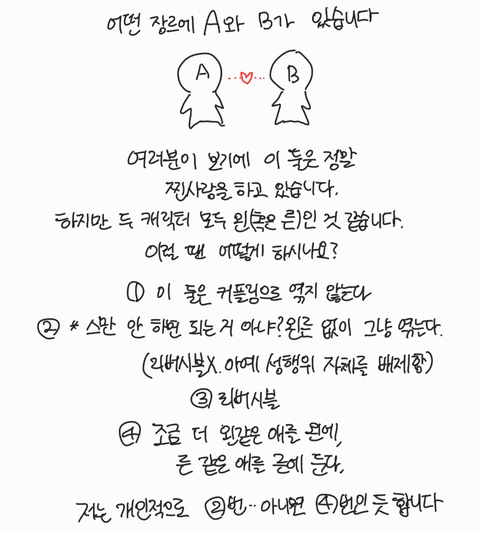 어떤 장르에 A와 B가 있습니다
A
B
여러분이 보기에 이 둘은 정말
찐사랑을 하고 있습니다.
하지만 두 캐릭터 모두 왼(혹은 른)인 것 같습니다.
이럴 땐 어떻게 하시나요?
① 이 둘은 커플링으로 엮지 않는다
② *스만 안 하면 되는 거 아냐? 왼른 없이 그냥 엮는다.
(리버시블X. 아예 성행위 자체를 배제함)
③ 리버시블
④ 조금 더 왼같은 애를 왼에,
른 같은 애를 른에 둔다.
저는 개인적으로 ②번.. 아니면 ④번인 듯 합니다